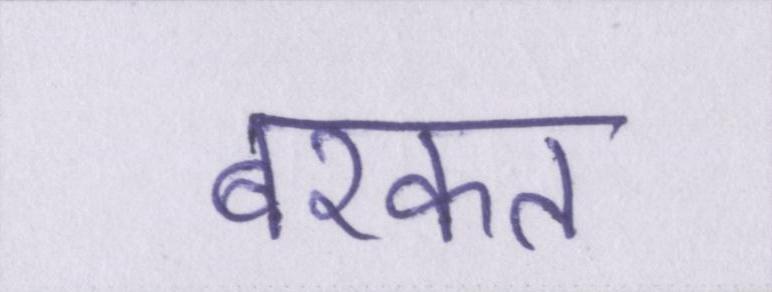 बरकत